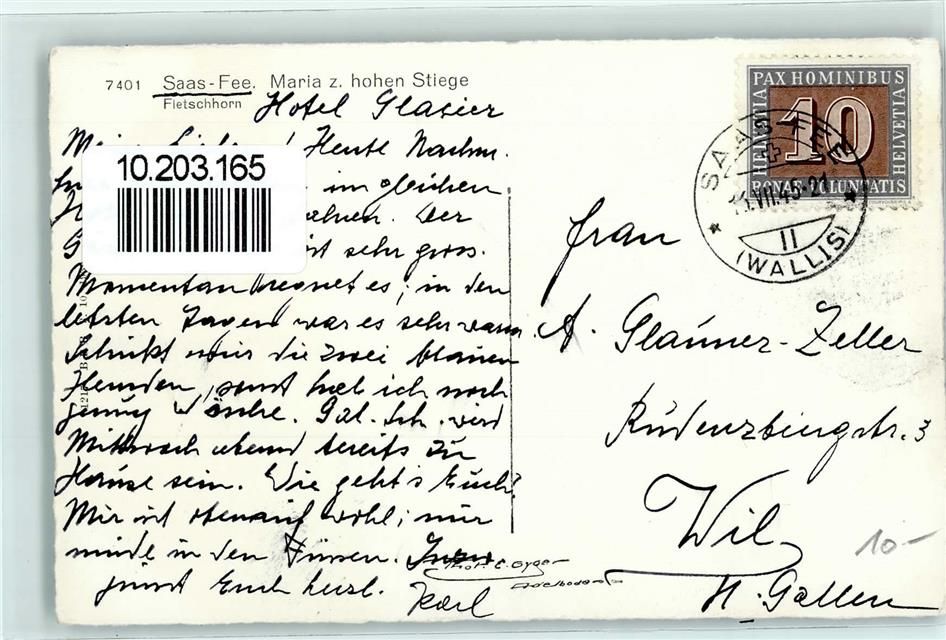 7401 Saas-Fee. Maria z. hohen Stiege
Fletschhorn
Hotel Glacier
Heute Nachm.
10.203.165
im gleichen
Der
sehr gross.
Momentan regnet es; in den
letzten Tagen war es sehr warm
Schickt mir die zwei blauen
Hemden, sonst hab ich noch
genug Wäsche. Gal. Sch. wird
Mittwoch abend bereits zu
Hause sein. Wie geht's Euch?
Mir ist obenauf wohl; nur
müde in den Füssen.
grüsst Euch herzl.
Karl
Phot. E. Gyger
Adelboden
PAX HOMINIBUS
HELVETIA
10
HELVETIA
BONAE VOLUNTATIS
SAAS-FEE
11.VII.45-21
II
(WALLIS)
Frau
A. Glauner-Zeller
Rudenzburgstr. 3
Wil
St. Gallen
10-